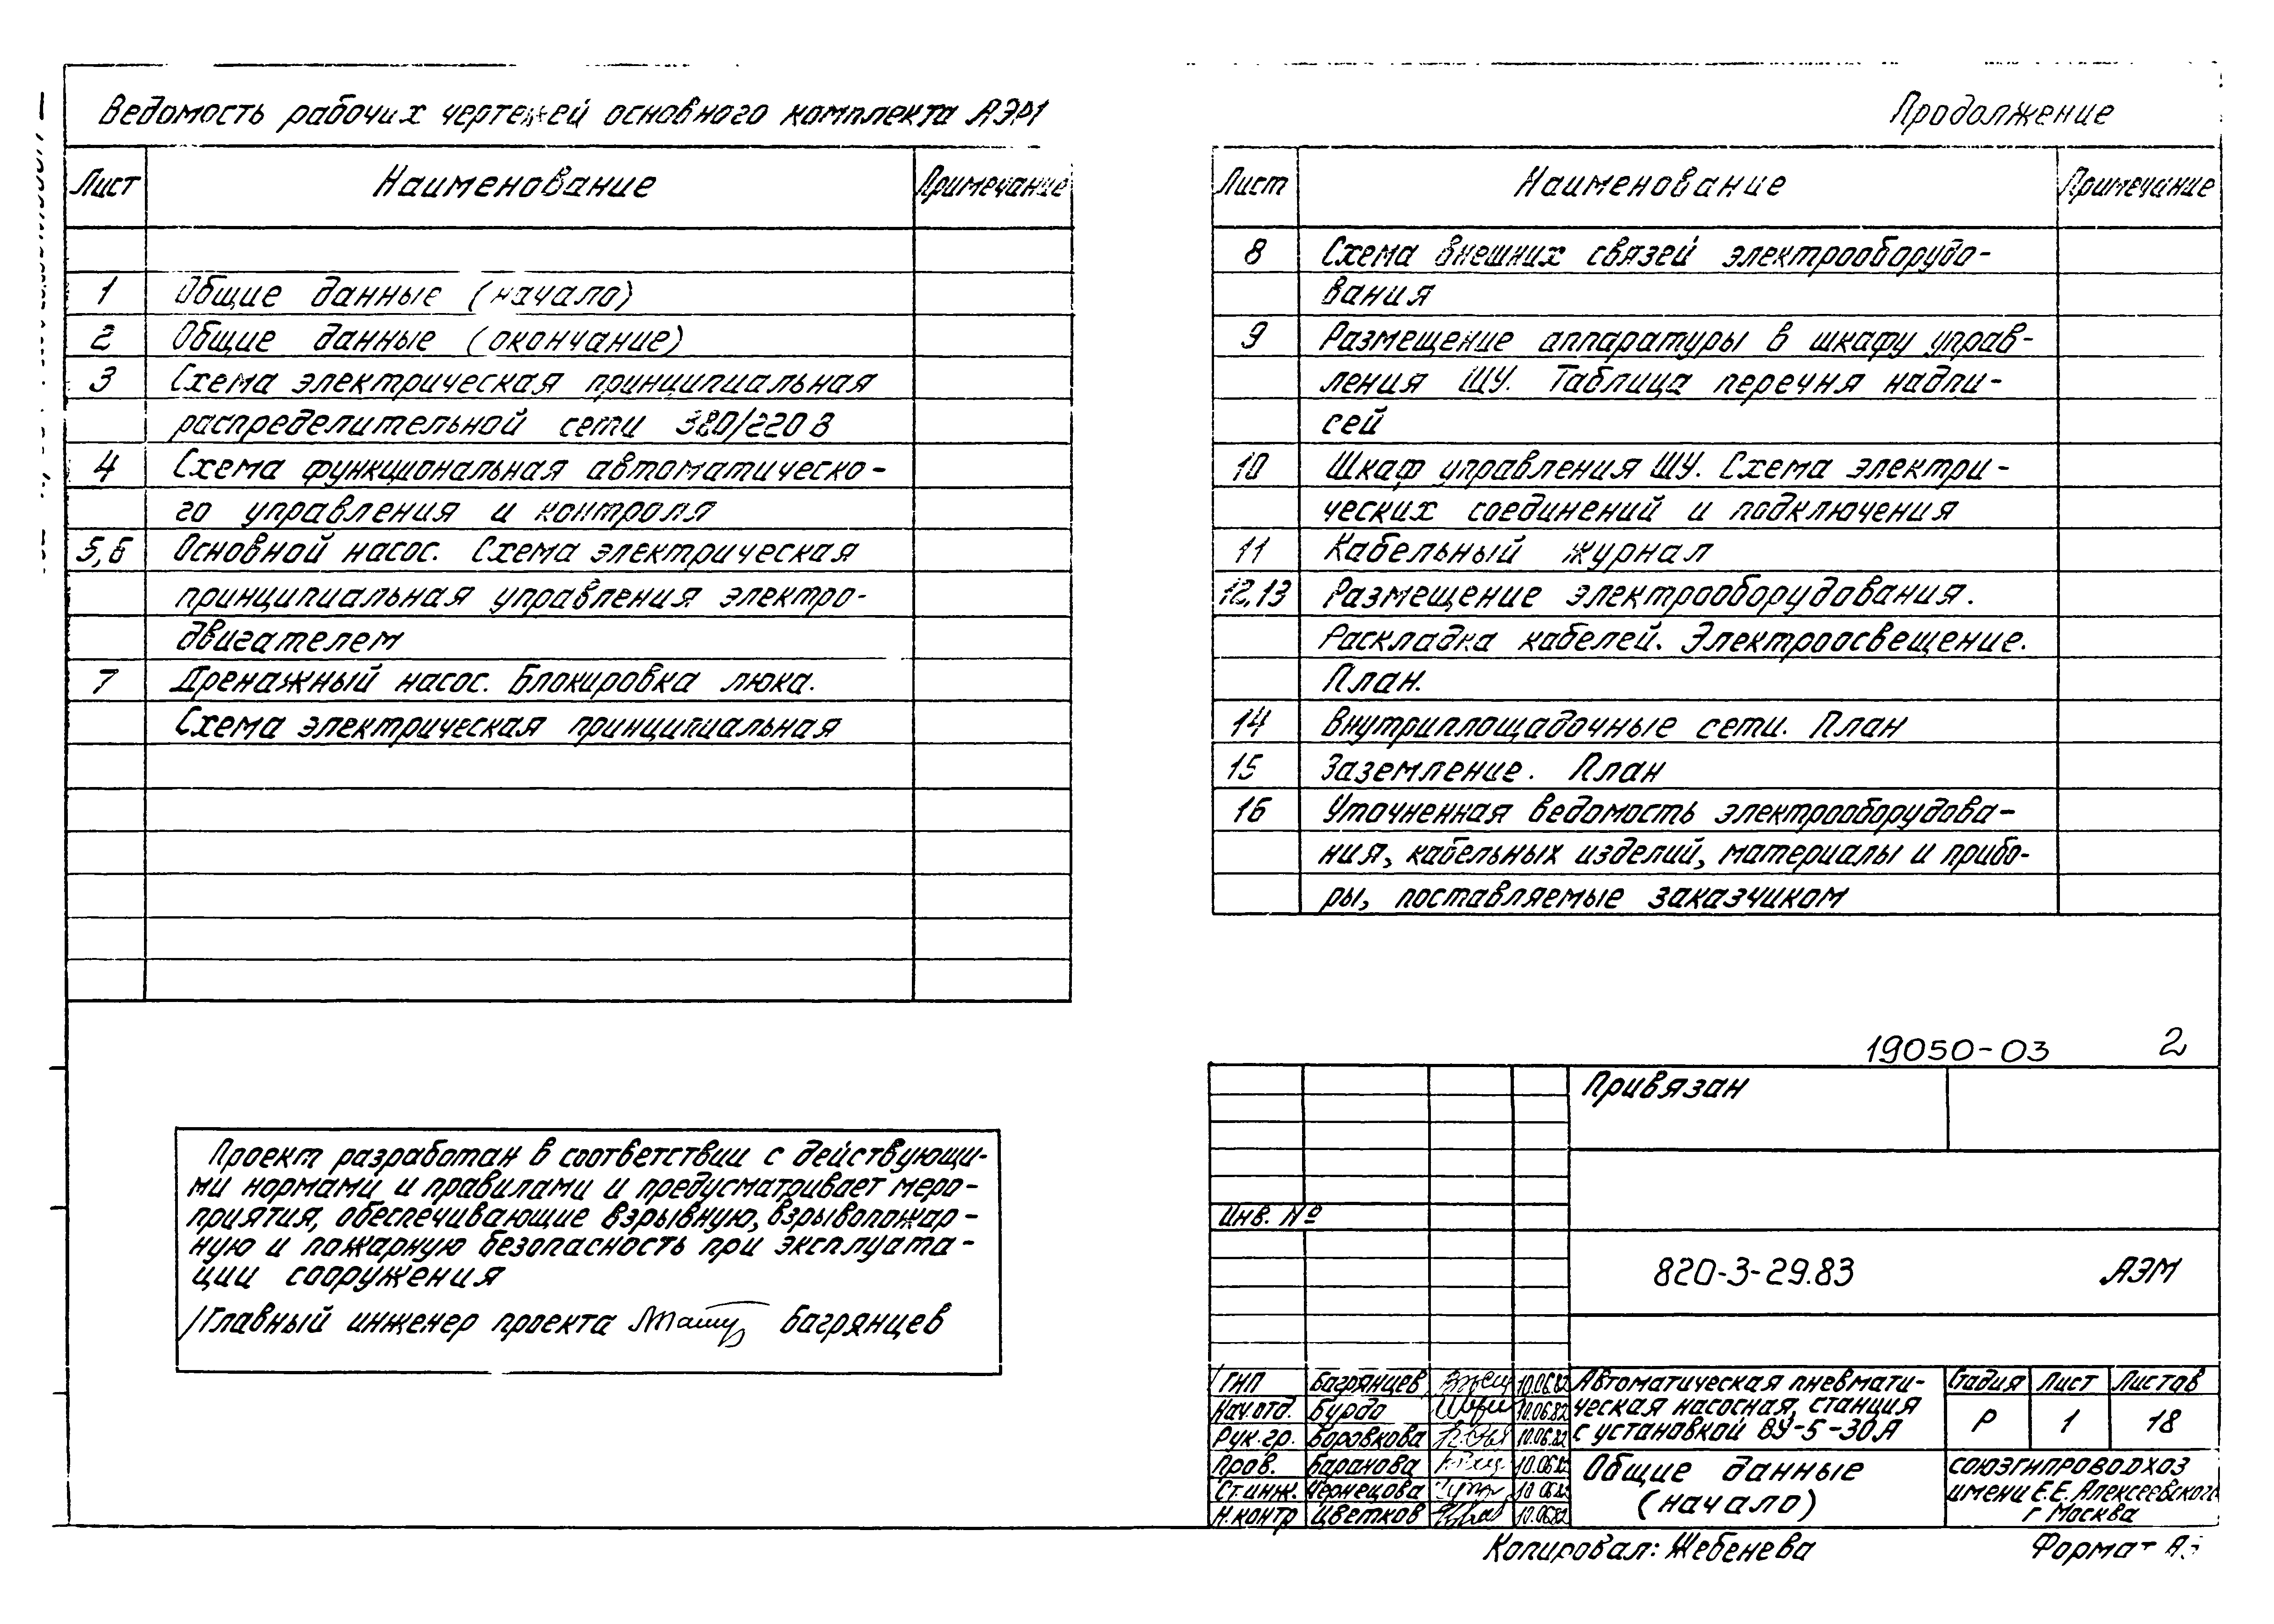 Ведомость рабочих чертежей основного комплекта АЭМ
Лист Наименование Примечание
1 Общие данные (начало)
2 Общие данные (окончание)
3 Схема электрическая принципиальная
распределительной сети 380/220 В
4 Схема функциональная автоматическо-
го управления и контроля
5,6 Основной насос. Схема электрическая
принципиальная управления электро-
двигателем
7 Дренажный насос. Блокировка люка.
Схема электрическая принципиальная
Продолжение
Лист Наименование Примечание
8 Схема внешних связей электрооборудо-
вания
9 Размещение аппаратуры в шкафу управ-
ления ШУ. Таблица перечня надпи-
сей
10 Шкаф управления ШУ. Схема электри-
ческих соединений и подключения
11 Кабельный журнал
12,13 Размещение электрооборудования.
Раскладка кабелей. Электроосвещение.
План.
14 Внутриплощадочные сети. План
15 Заземление. План
16 Уточненная ведомость электрооборудова-
ния, кабельных изделий, материалы и прибо-
ры, поставляемые заказчиком
Проект разработан в соответствии с действующи-
ми нормами и правилами и предусматривает меро-
приятия, обеспечивающие взрывную, взрывопожар-
ную и пожарную безопасность при эксплуата-
ции сооружения
Главный инженер проекта Багрянцев
19050-03 2
Привязан
Инв. №
820-3-29.83 АЭМ
ГИП Багрянцев 10.06.82
Нач.отд. Бурдо 10.06.82
Рук.гр. Боровкова 10.06.82
Пров. Баранова 10.06.82
Ст.инж. Чернецова 10.06.82
Н.контр Цветков 10.06.82
Автоматическая пневмати-
ческая насосная станция
с установкой ВУ-5-30А
Стадия Лист Листов
Р 1 18
Общие данные
(начало)
СОЮЗГИПРОВОДХОЗ
имени Е.Е. Алексеевского
г Москва
Копировал: Жебенева
Формат